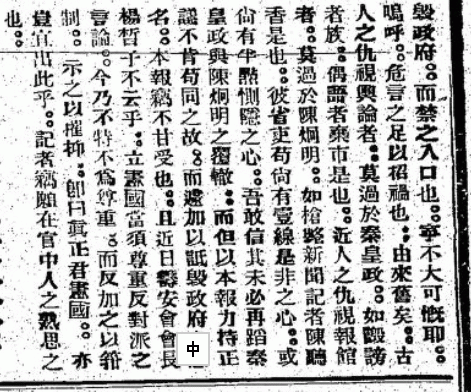 毀政府。而禁之入口也。寧不大可慨耶。
嗚呼。危言之足以招禍也。由來舊矣。古
人之仇視輿論者。莫過於秦皇政。如毀謗
者族。偶語者棄市是也。近人之仇視報館
者。莫過於陳炯明。如槍斃新聞記者陳聽
香是也。彼省吏苟尙有壹線是非之心。或
尙有半點惻隱之心。吾敢信其未必再蹈秦
皇政與陳炯明之覆轍。而但以本報力持正
議不肯苟同之故。而遽加以詆毀政府
名。本報竊不甘受也。且近日籌安會會長
楊皙子不云乎。立憲國當須尊重反對派之
言論。今乃不特不爲尊重。而反加之以箝
制。示之以摧抑。卽曰眞正君憲國。亦
豈宜出此乎。記者竊願在官中人之熟思之
也。
中